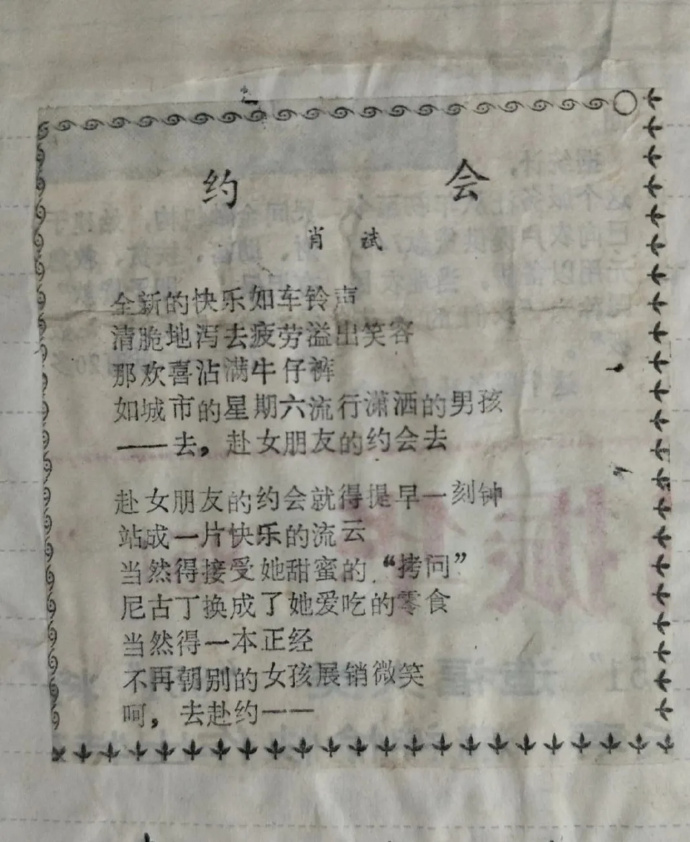 约会
肖试
全新的快乐如车铃声
清脆地泻去疲劳溢出笑容
那欢喜沾满牛仔裤
如城市的星期六流行潇洒的男孩
——去，赴女朋友的约会去
赴女朋友的约会就得提早一刻钟
站成一片快乐的流云
当然得接受她甜蜜的“拷问”
尼古丁换成了她爱吃的零食
当然得一本正经
不再朝别的女孩展销微笑
呵，去赴约——